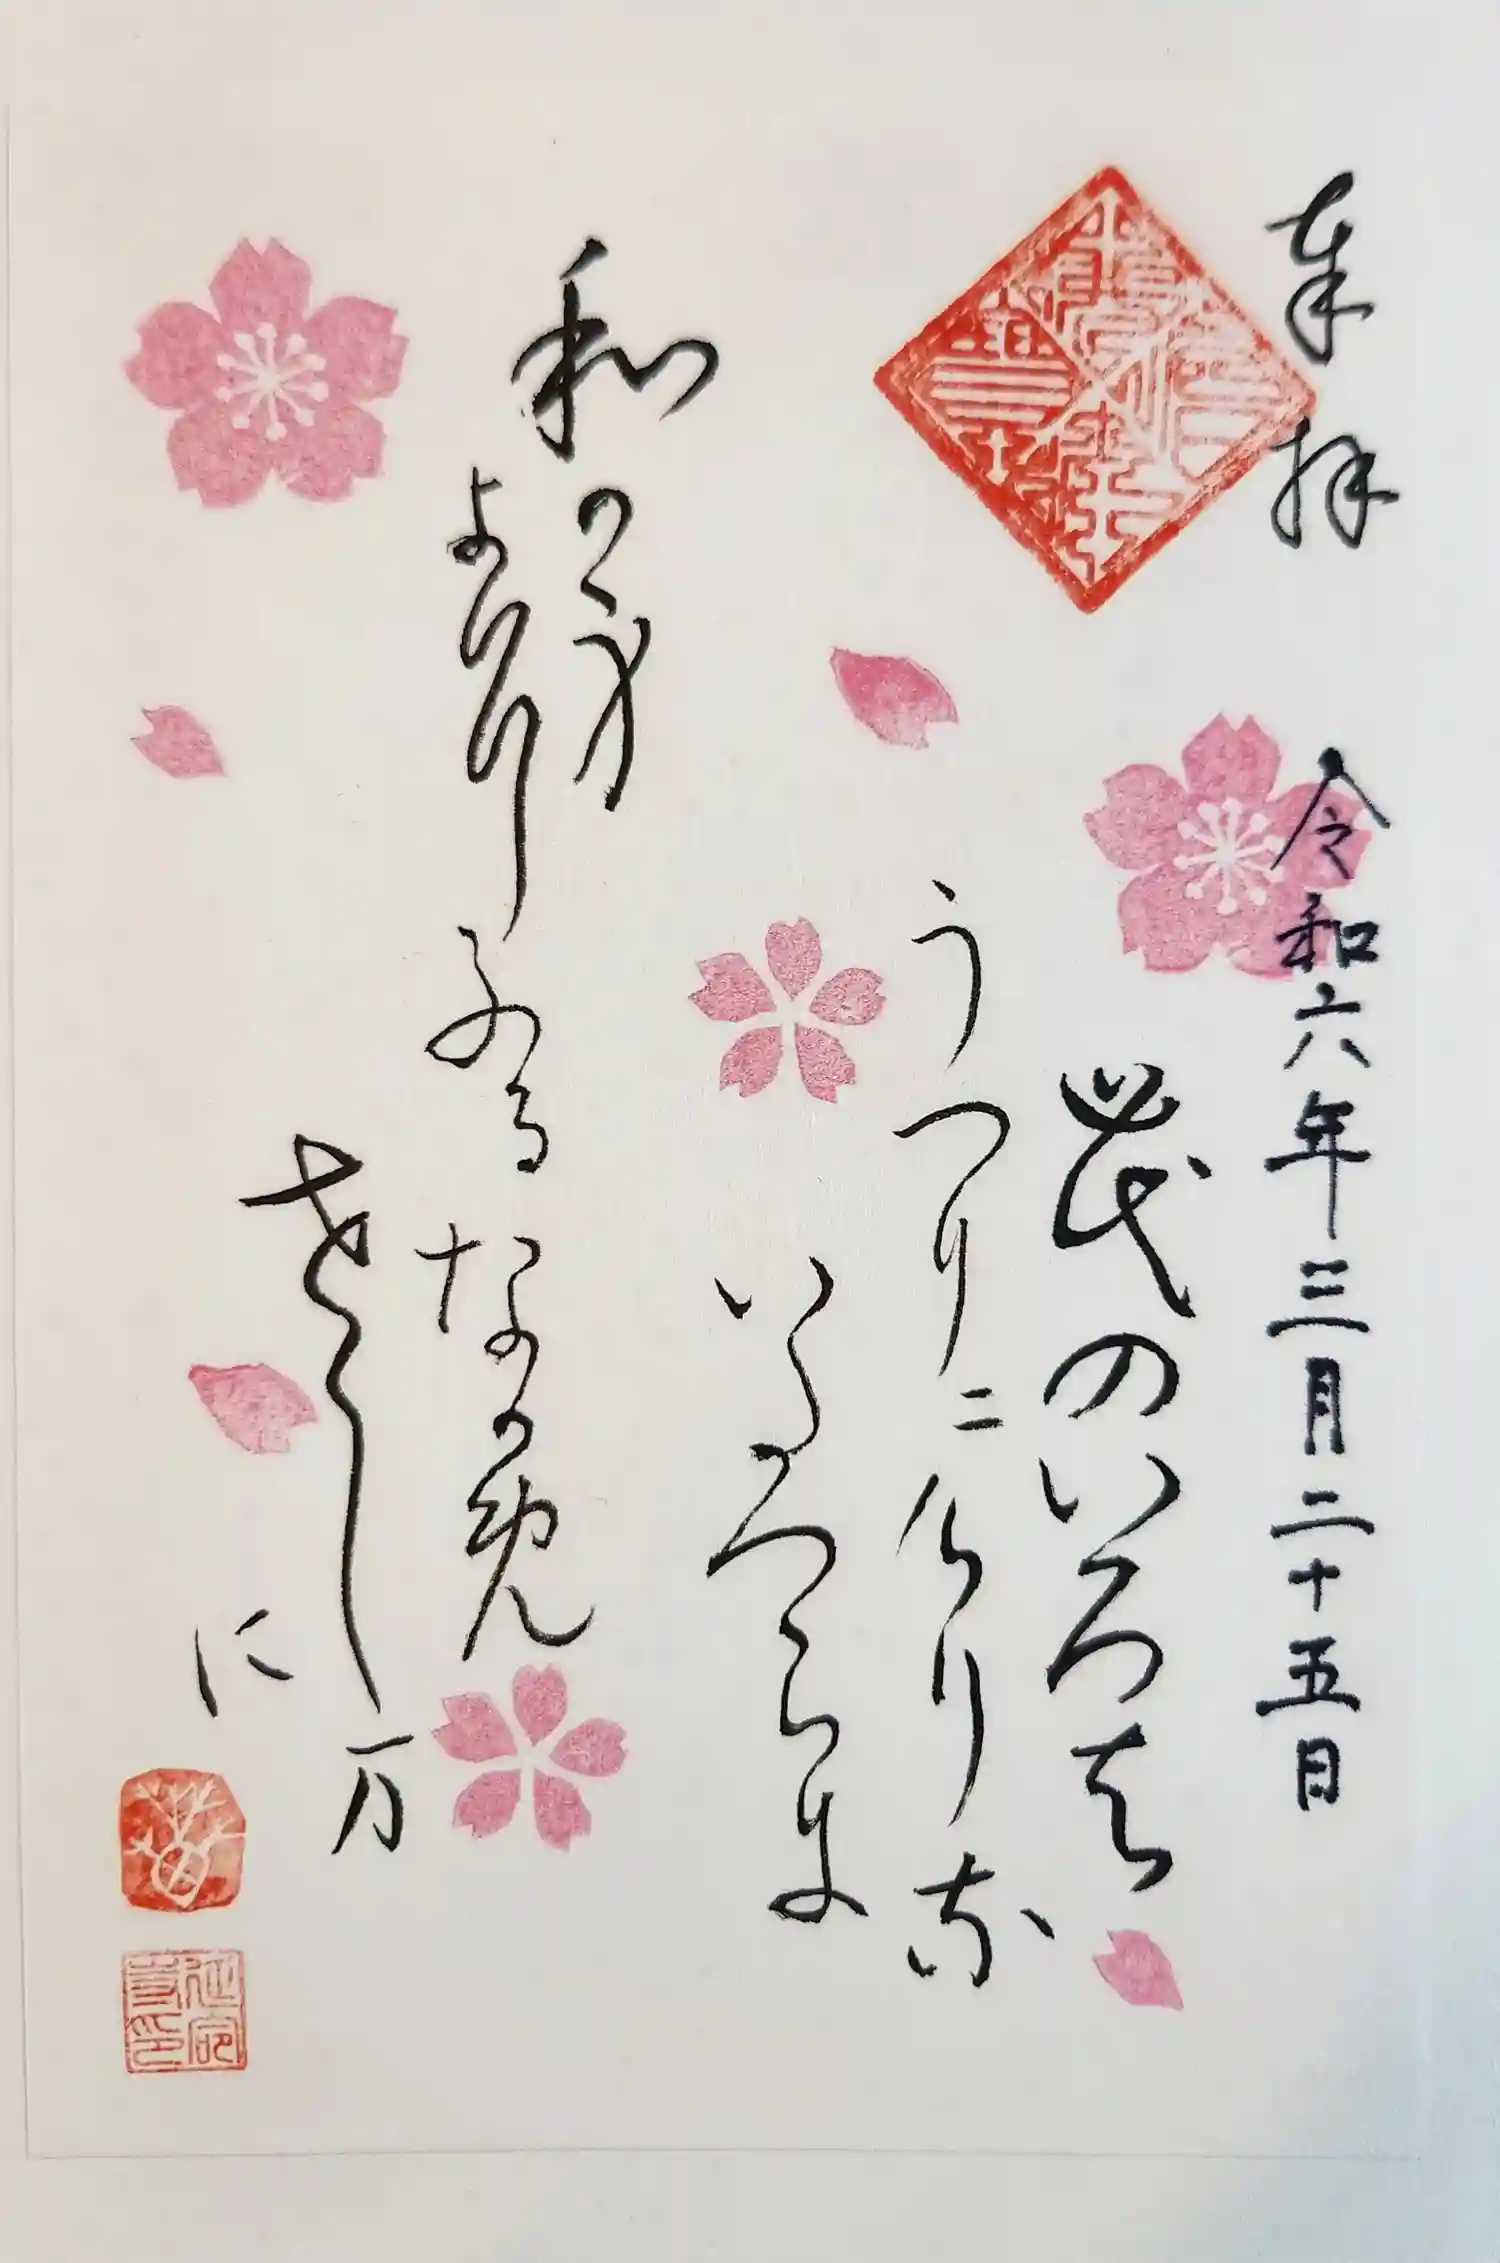 奉拝 令和六年三月二十五日
花のいろは
うつりニけりな
いたつらに
和か身
よにふるなかめ
せし万
に